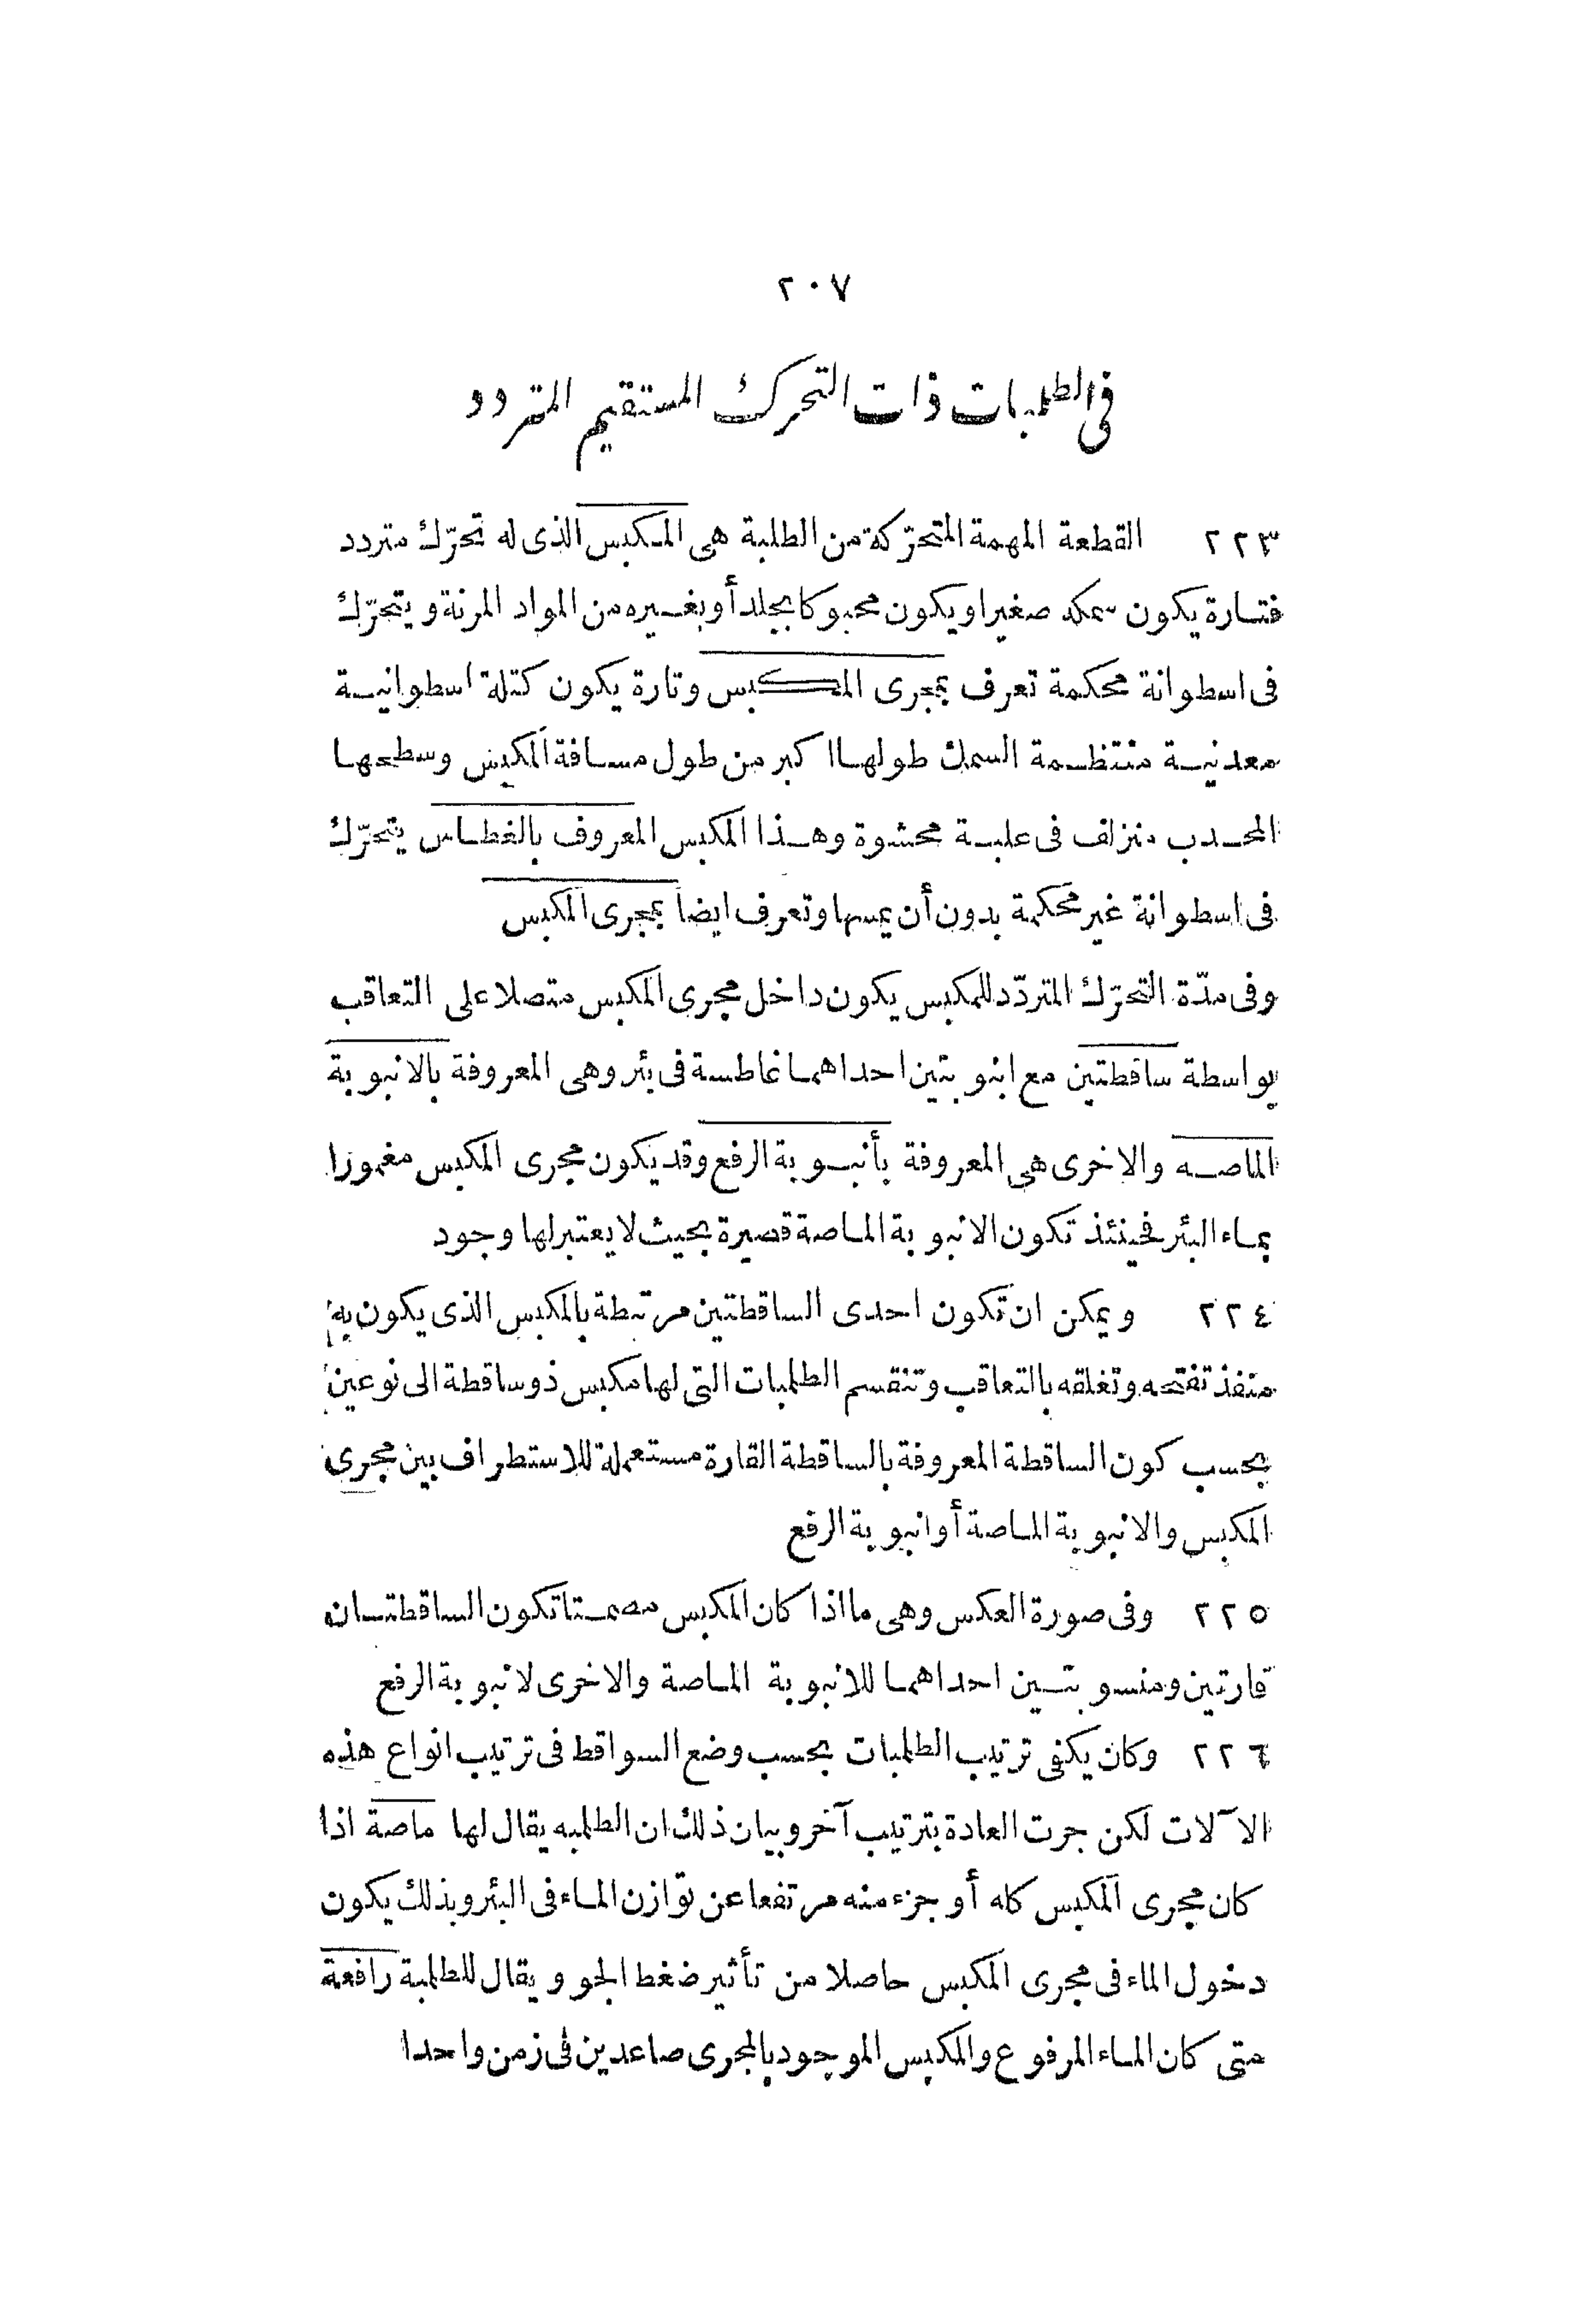 ٢٠٧
فى الطلمبات ذات التحرك المستقيم المتردد
٢٢٣ القطعة المهمة المتحرّكة من الطلبة هى المكبس الذى له تحرّك متردد
فتارة يكون سمكه صغيرا ويكون محبوكا بجلد أو بغيره من المواد المرنة ويتحرّك
فى اسطوانة محكمة تعرف بمجرى المكبس وتارة يكون كتلة اسطوانية
معدنية منتظمة السمك طولها اكبر من طول مسافة المكبس وسطحها
المحدب منزلف فى علبة محشوة وهذا المكبس المعروف بالغطاس يتحرّك
فى اسطوانة غير محكمة بدون أن يمسها وتعرف ايضا بمجرى المكبس
وفى مدّة التحرّك المتردّد للمكبس يكون داخل مجرى المكبس متصلا على التعاقب
بواسطة ساقطتين مع انبوبتين احداهما غاطسة فى بئر وهى المعروفة بالانبوبة
الماصه والاخرى هى المعروفة بأنبوبة الرفع وقد يكون مجرى المكبس مغمورا
بماء البئر فحينئذ تكون الانبوبة الماصة قصيرة بحيث لا يعتبر لها وجود
٢٢٤ ويمكن ان تكون احدى الساقطتين مرتبطة بالمكبس الذى يكون به
منفذ تفتحه وتغلقه بالتعاقب وتنقسم الطلمبات التى لها مكبس ذو ساقطة الى نوعين
بحسب كون الساقطة المعروفة بالساقطة القارة مستعملة للاستطراف بين مجرى
المكبس والانبوبة الماصة أو انبوبة الرفع
٢٢٥ وفى صورة العكس وهى ما اذا كان المكبس مصمتا تكون الساقطتان
قارتين ومنسوبتين احداهما للانبوبة الماصة والاخرى لانبوبة الرفع
٢٢٦ وكان يكفى ترتيب الطلمبات بحسب وضع السواقط فى ترتيب انواع هذه
الآلات لكن جرت العادة بترتيب آخر وبيان ذلك ان الطلمبه يقال لها ماصة اذا
كان مجرى المكبس كله أو جزء منه مرتفعا عن توازن الماء فى البئر وبذلك يكون
دخول الماء فى مجرى المكبس حاصلا من تأثير ضغط الجو ويقال للطلمبة رافعة
متى كان الماء المرفوع والمكبس الموجود بالمجرى صاعدين فى زمن واحد ا